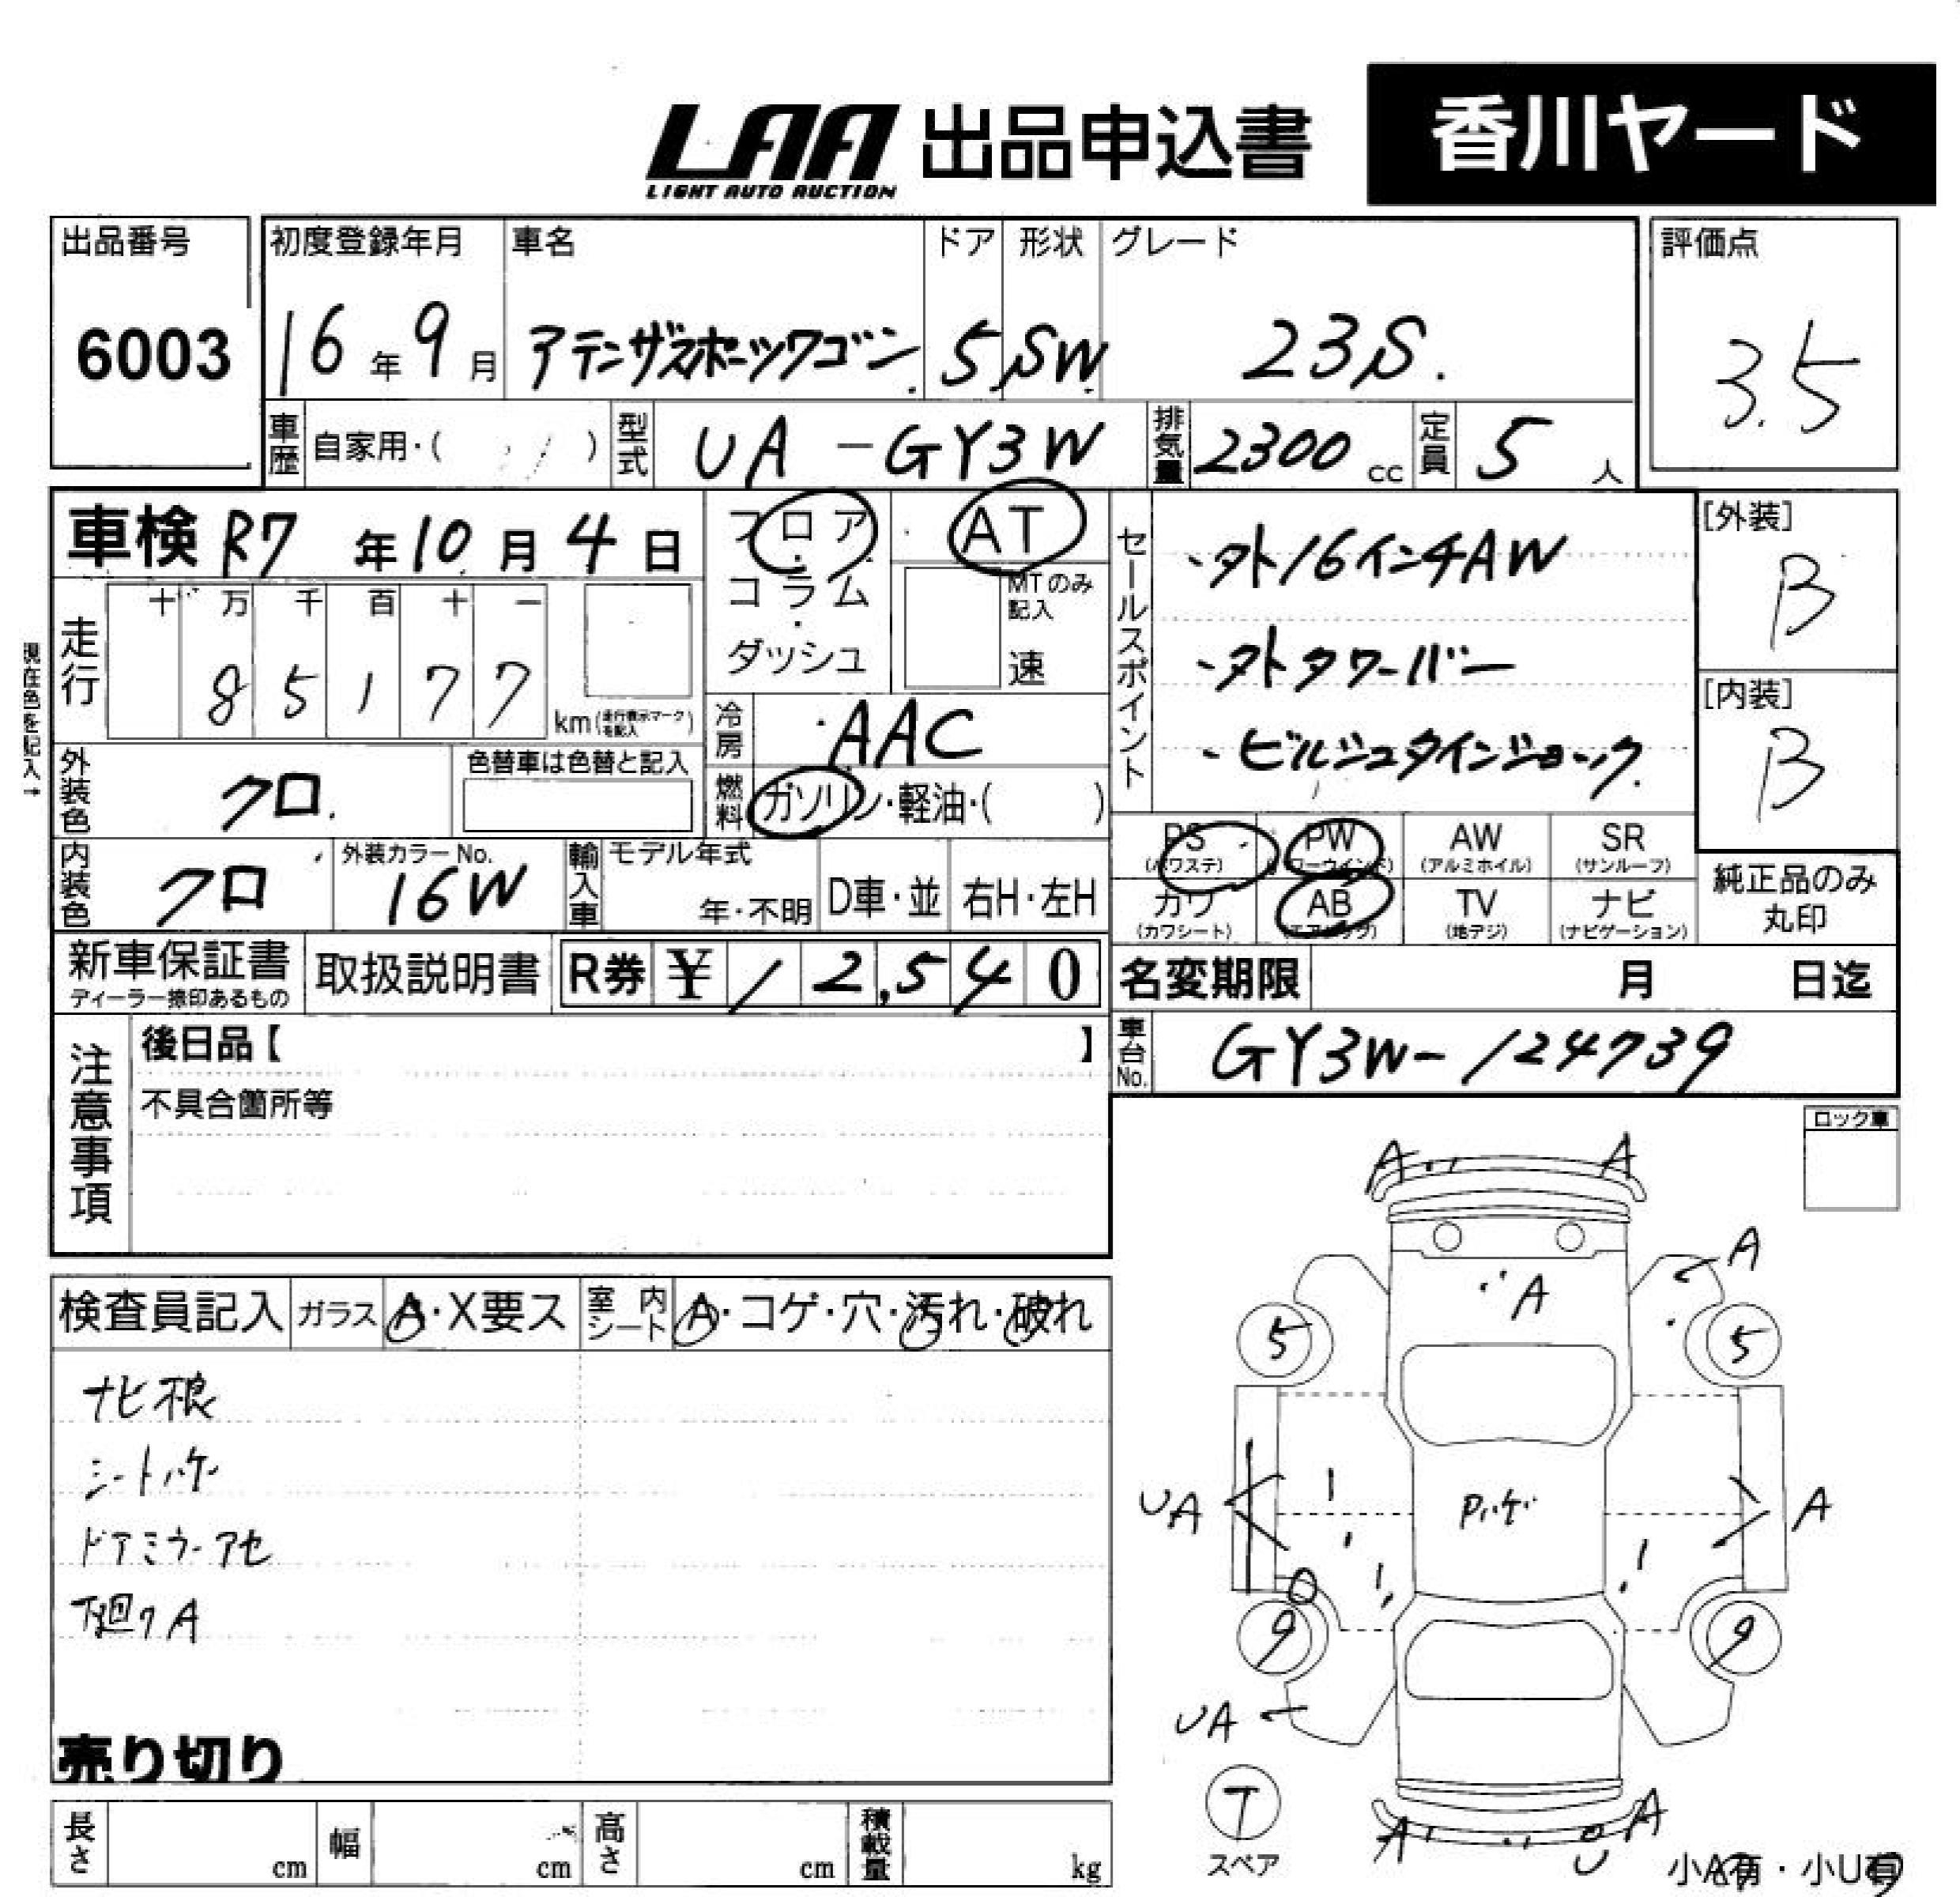 LAA
LIGHT AUTO AUCTION
出品申込書
香川ヤード
出品番号
6003
初度登録年月
16年9月
車名
アテンザスポーツワゴン
ドア
5
形状
SW
グレード
23S.
評価点
3.5
車歴
自家用・( )
型式
UA-GY3W
排気量
2300 cc
定員
5人
車検 R7年10月4日
走行
十 万 千 百 十 一
8 5 1 7 7
km(走行表示マークを記入)
現在色を記入→
フロア・
コラム・
ダッシュ
AT
MTのみ記入
速
冷房
AAC
燃料
ガソリン・軽油・( )
外装色
クロ.
色替車は色替と記入
内装色
クロ
外装カラーNo.
16W
輸入車
モデル年式
年・不明
D車・並
右H・左H
セールスポイント
・外16インチAW
・外タワーバー
・ビルシュタインショック.
[外装]
B
[内装]
B
PS
(パワステ)
PW
(パワーウインド)
AW
(アルミホイル)
SR
(サンルーフ)
カワ
(カワシート)
AB
(エアバッグ)
TV
(地デジ)
ナビ
(ナビゲーション)
純正品のみ
丸印
新車保証書
ディーラー捺印あるもの
取扱説明書
R券 ¥12,540
名変期限 月 日迄
車台No.
GY3W-124739
注意事項
後日品【 】
不具合箇所等
ロック車
検査員記入
ガラス
A・X要ス
室内シート
A・コゲ・穴・汚れ・破れ
ナビ不良
シートハゲ
ドアミラーアセ
下廻りA
売り切り
長さ cm
幅 cm
高さ cm
積載量 kg
A A
A
A
5 5
UA
Pハゲ
A
9 9
UA
T
スペア
A U A
小A有・小U有